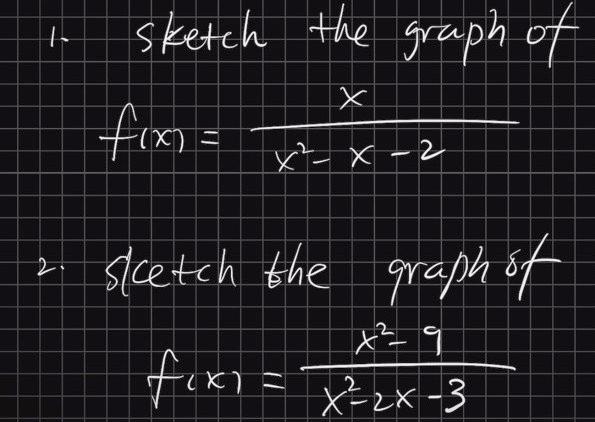 1. sketch the graph of
f(x) = x / (x² - x - 2)
2. sketch the graph of
f(x) = (x² - 9) / (x² - 2x - 3)